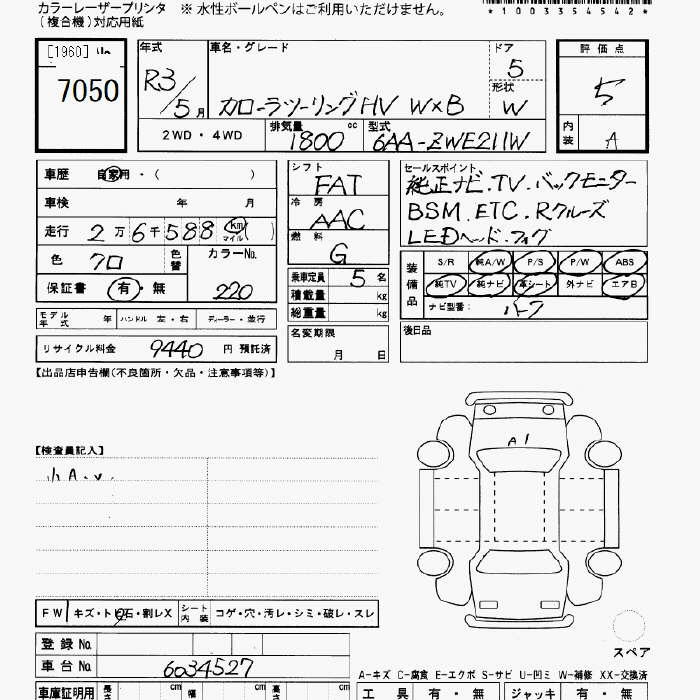 カラーレーザープリンタ ※ 水性ボールペンはご利用いただけません。
(複合機)対応用紙
*100354542*
[1960]
7050
年式 R3/5月
車名・グレード カローラツーリングHV W×B
ドア 5
形状 W
2WD・4WD
排気量 1800 cc
型式 6AA-ZWE211W
評価点 5
内装 A
車歴 自家用・( )
車検 年 月
走行 2万6千588 km マイル ( )
色 クロ 色替
カラーNo. 220
保証書 有・無
シフト FAT
冷房 AAC
燃料 G
乗車定員 5名
積載量 kg
総重量 kg
セールスポイント
純正ナビ.TV.バックモニター
BSM.ETC.Rクルーズ
LEDヘッド.フォグ
装備品
S/R 純A/W P/S P/W ABS
純TV 純ナビ 革シート 外ナビ エアB
ナビ型番:
モデル年式 年 ハンドル 左・右 ディーラー・並行
名変期限 月 日
後日品
リサイクル料金 9440 円 預託済
【出品店申告欄(不良箇所・欠品・注意事項等)】
A1
【検査員記入】
小A.
FW キズ・トビ石・割レX
シート内装 コゲ・穴・汚レ・シミ・破レ・スレ
登録No.
車台No. 6034527
スペア
A-キズ C-腐食 E-エクボ S-サビ U-凹ミ W-補修 XX-交換済
車庫証明用 長さ cm 幅 cm 高さ cm
工具 有・無 ジャッキ 有・無